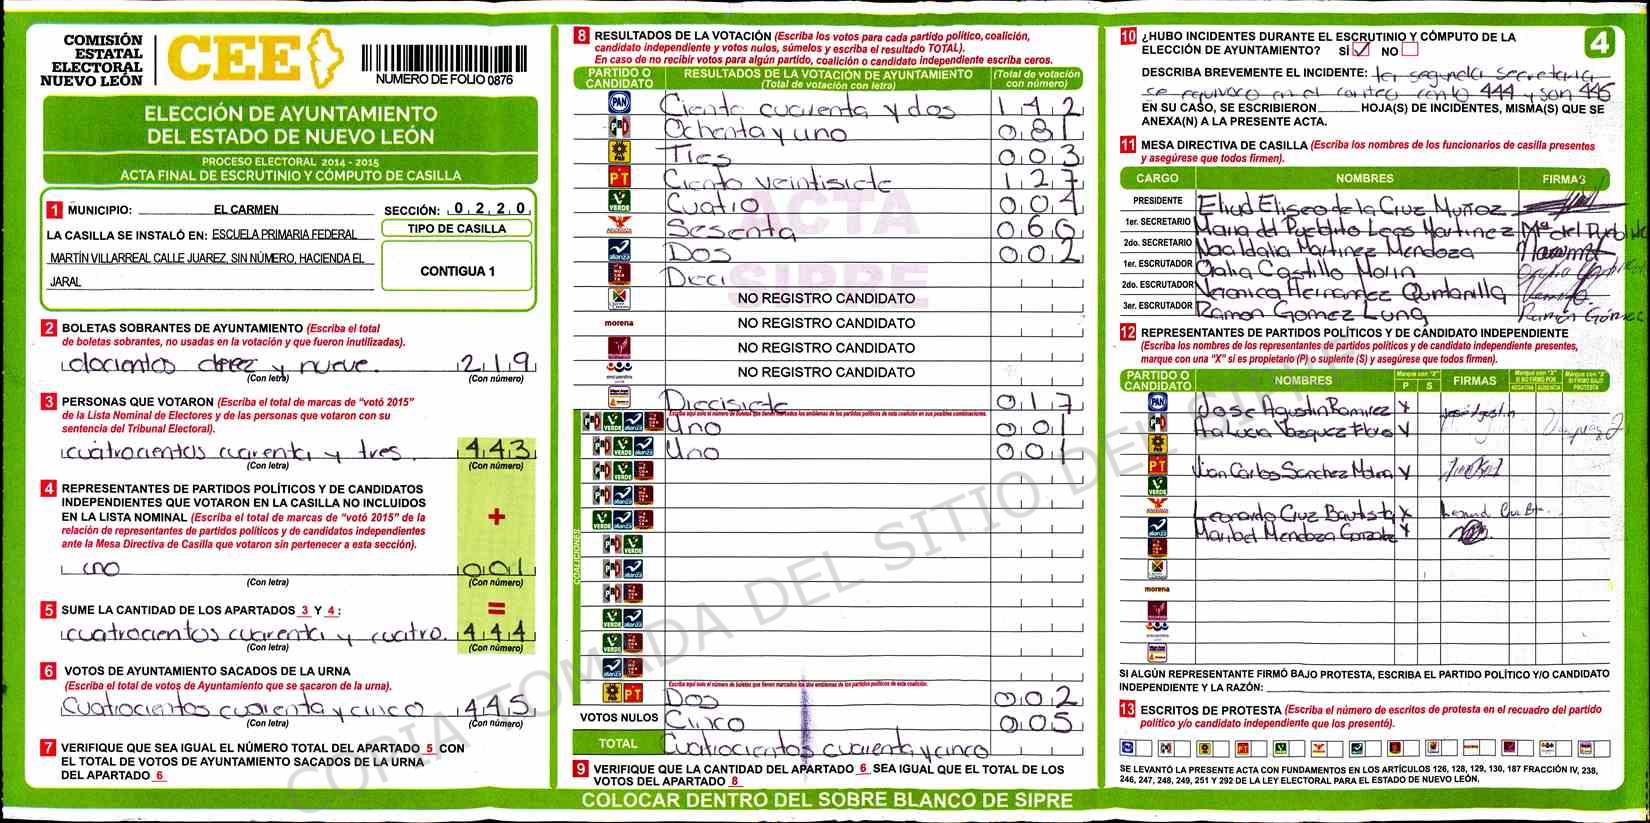 COMISIÓN
ESTATAL
ELECTORAL
NUEVO LEÓN
CEE
NUMERO DE FOLIO 0876
ELECCIÓN DE AYUNTAMIENTO
DEL ESTADO DE NUEVO LEÓN
PROCESO ELECTORAL 2014 - 2015
ACTA FINAL DE ESCRUTINIO Y CÓMPUTO DE CASILLA
1 MUNICIPIO: EL CARMEN SECCIÓN: 0 2 2 0
LA CASILLA SE INSTALÓ EN: ESCUELA PRIMARIA FEDERAL
MARTÍN VILLARREAL CALLE JUAREZ, SIN NÚMERO, HACIENDA EL
JARAL
TIPO DE CASILLA
CONTIGUA 1
2 BOLETAS SOBRANTES DE AYUNTAMIENTO (Escriba el total
de boletas sobrantes, no usadas en la votación y que fueron inutilizadas).
docientos diez y nueve. 2 1 9
(Con letra) (Con número)
3 PERSONAS QUE VOTARON (Escriba el total de marcas de "votó 2015"
de la Lista Nominal de Electores y de las personas que votaron con su
sentencia del Tribunal Electoral).
cuatrocientos cuarenta y tres. 4 4 3
(Con letra) (Con número)
4 REPRESENTANTES DE PARTIDOS POLÍTICOS Y DE CANDIDATOS
INDEPENDIENTES QUE VOTARON EN LA CASILLA NO INCLUIDOS
EN LA LISTA NOMINAL (Escriba el total de marcas de "votó 2015" de la
relación de representantes de partidos políticos y de candidatos independientes
ante la Mesa Directiva de Casilla que votaron sin pertenecer a esta sección).
+
uno 0 0 1
(Con letra) (Con número)
5 SUME LA CANTIDAD DE LOS APARTADOS 3 Y 4: =
cuatrocientos cuarenta y cuatro. 4 4 4
(Con letra) (Con número)
6 VOTOS DE AYUNTAMIENTO SACADOS DE LA URNA
(Escriba el total de votos de Ayuntamiento que se sacaron de la urna).
Cuatrocientos cuarenta y cinco 4 4 5
(Con letra) (Con número)
7 VERIFIQUE QUE SEA IGUAL EL NÚMERO TOTAL DEL APARTADO 5 CON
EL TOTAL DE VOTOS DE AYUNTAMIENTO SACADOS DE LA URNA
DEL APARTADO 6
8 RESULTADOS DE LA VOTACIÓN (Escriba los votos para cada partido político, coalición,
candidato independiente y votos nulos, súmelos y escriba el resultado TOTAL).
En caso de no recibir votos para algún partido, coalición o candidato independiente escriba ceros.
PARTIDO O
CANDIDATO
RESULTADOS DE LA VOTACIÓN DE AYUNTAMIENTO
(Total de votación con letra)
(Total de votación
con número)
PAN Ciento cuarenta y dos 1 4 2
PRD Ochenta y uno 0 8 1
Tres 0 0 3
PT Ciento veintisiete 1 2 7
VERDE Cuatro 0 0 4
Sesenta 0 6 0
alianza Dos 0 0 2
Deci
NO REGISTRO CANDIDATO
morena NO REGISTRO CANDIDATO
NO REGISTRO CANDIDATO
encuentro NO REGISTRO CANDIDATO
Diecisiete 0 1 7
COALICIONES
Escriba aquí solo el número de boletas que tienen marcados los emblemas de los partidos políticos de esta coalición en sus posibles combinaciones.
Uno 0 0 1
Uno 0 0 1
Escriba aquí solo el número de boletas que tienen marcados los dos emblemas de los partidos políticos de esta coalición.
PT Dos 0 0 2
VOTOS NULOS Cinco 0 0 5
TOTAL Cuatrocientos cuarenta y cinco
9 VERIFIQUE QUE LA CANTIDAD DEL APARTADO 6 SEA IGUAL QUE EL TOTAL DE LOS
VOTOS DEL APARTADO 8
COLOCAR DENTRO DEL SOBRE BLANCO DE SIPRE
ACTA
SIPRE
10 ¿HUBO INCIDENTES DURANTE EL ESCRUTINIO Y CÓMPUTO DE LA
ELECCIÓN DE AYUNTAMIENTO? SÍ NO
4
DESCRIBA BREVEMENTE EL INCIDENTE: la segunda secretaria
se equivoco en el conteo conto 444 y son 445
EN SU CASO, SE ESCRIBIERON HOJA(S) DE INCIDENTES, MISMA(S) QUE SE
ANEXA(N) A LA PRESENTE ACTA.
11 MESA DIRECTIVA DE CASILLA (Escriba los nombres de los funcionarios de casilla presentes
y asegúrese que todos firmen).
CARGO NOMBRES FIRMAS
PRESIDENTE Eliud Eliseo de la Cruz Muñoz
1er. SECRETARIO Maria del Pueblito Leos Martinez Mª del Pueblito
2do. SECRETARIO Noa Idalia Martinez Mendoza
1er. ESCRUTADOR Oralia Castillo Morin
2do. ESCRUTADOR Veronica Hernandez Quintanilla
3er. ESCRUTADOR Ramon Gomez Luna Ramón Gómez
12 REPRESENTANTES DE PARTIDOS POLÍTICOS Y DE CANDIDATO INDEPENDIENTE
(Escriba los nombres de los representantes de partidos políticos y de candidato independiente presentes,
marque con una "X" si es propietario (P) o suplente (S) y asegúrese que todos firmen).
PARTIDO O
CANDIDATO
NOMBRES
Marque con "X"
P S
FIRMAS
Marque con "X"
SI NO FIRMÓ POR
NEGATIVA AUSENCIA
Marque con "X"
SI FIRMÓ BAJO
PROTESTA
PAN Jose Agustin Ramirez X
Ana Lucia Vazquez Flores
PT Juan Carlos Sanchez
VERDE
Leonardo Cruz Bautista X
Maribel Mendoza Gonzalez
morena
encuentro
SI ALGÚN REPRESENTANTE FIRMÓ BAJO PROTESTA, ESCRIBA EL PARTIDO POLÍTICO Y/O CANDIDATO
INDEPENDIENTE Y LA RAZÓN:
13 ESCRITOS DE PROTESTA (Escriba el número de escritos de protesta en el recuadro del partido
político y/o candidato independiente que los presentó).
SE LEVANTÓ LA PRESENTE ACTA CON FUNDAMENTOS EN LOS ARTÍCULOS 126, 128, 129, 130, 187 FRACCIÓN IV, 238,
246, 247, 248, 249, 251 Y 292 DE LA LEY ELECTORAL PARA EL ESTADO DE NUEVO LEÓN.
COPIA TOMADA DEL SITIO DEL SIPRE